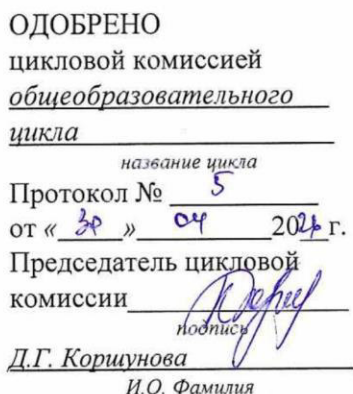 ОДОБРЕНО
цикловой комиссией
общеобразовательного
цикла
название цикла
Протокол № 5
от «30» 04 20 г.
Председатель цикловой
комиссии
подпись
Д.Г. Коршунова
И.О. Фамилия